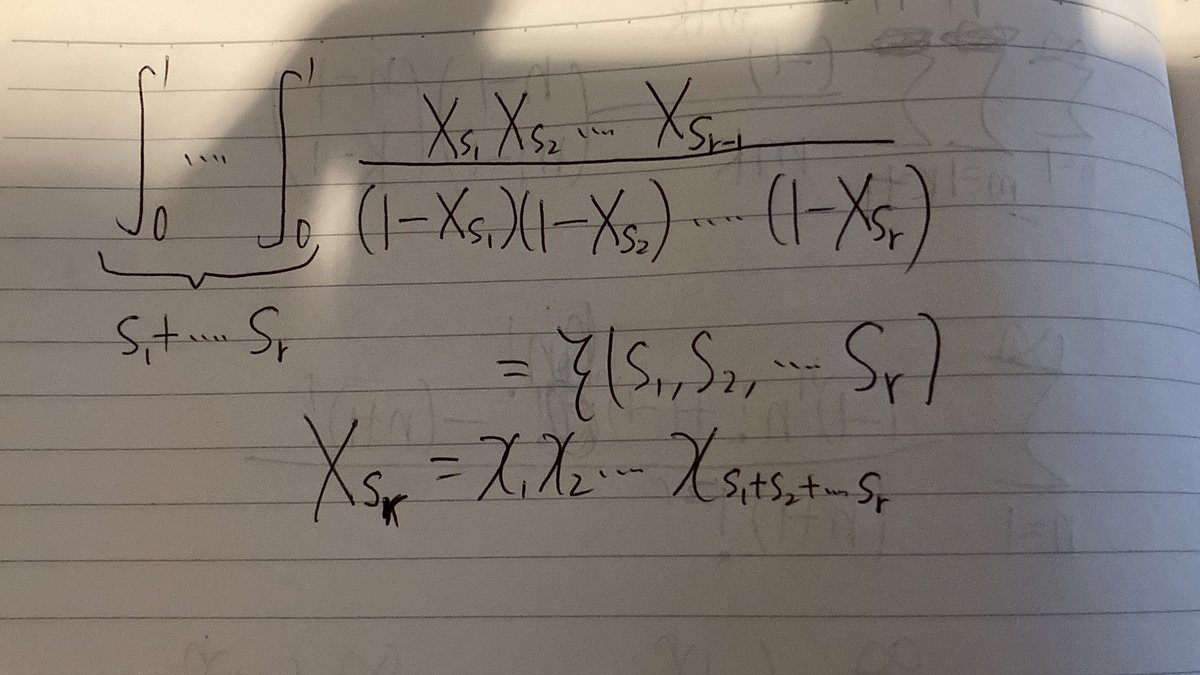 ∫₀¹ ···· ∫₀¹ X_{S₁} X_{S₂} ···· X_{S_{r-1}} / (1-X_{S₁})(1-X_{S₂}) ····· (1-X_{S_r})
S₁+ ···· S_r
= ζ(S₁, S₂, ··· S_r)
X_{S_r} = x₁ x₂ ··· x_{S₁+S₂+···S_r}